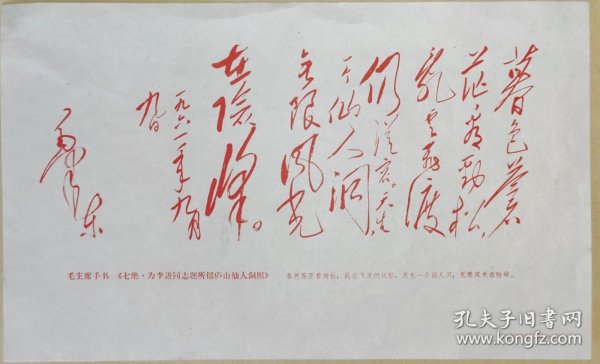 暮色苍
茫看劲松
乱云飞渡
仍从容。天生
一个仙人洞
无限风光
在险峰。
一九六一年九月
九日
毛泽东
毛主席手书 《七绝·为李进同志题所摄庐山仙人洞照》 暮色苍茫看劲松，乱云飞渡仍从容。天生一个仙人洞，无限风光在险峰。
孔夫子旧书网